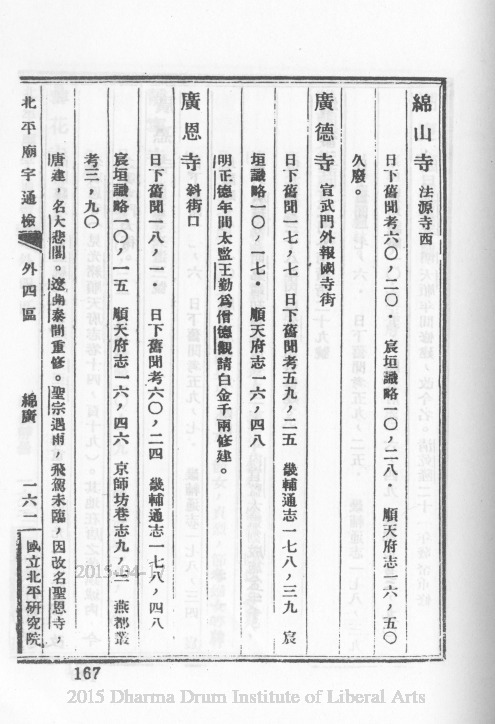 綿山寺 法源寺西
日下舊聞考六〇,二〇. 宸垣識略一〇,二八. 順天府志一六,五〇
久廢。
廣德寺 宣武門外報國寺街
日下舊聞一七,七 日下舊聞考五九,二五 畿輔通志一七八,三九 宸
垣識略一〇,一七. 順天府志一六,四八
明正德年間太監王勤爲僧德觀請白金千兩修建。
廣恩寺 斜街口
日下舊聞一八,一. 日下舊聞考六〇,二四 畿輔通志一七八,四八
宸垣識略一〇,一五 順天府志一六,四六 京師坊巷志九, 燕都叢
考三,九〇
唐建,名大悲閣。遼 泰間重修。聖宗遇雨,飛駕來臨,因改名聖恩寺,
北平廟宇通檢 外四區 綿廣 一六一 國立北平研究院
167
2015-04-1
2015 Dharma Drum Institute of Liberal Arts